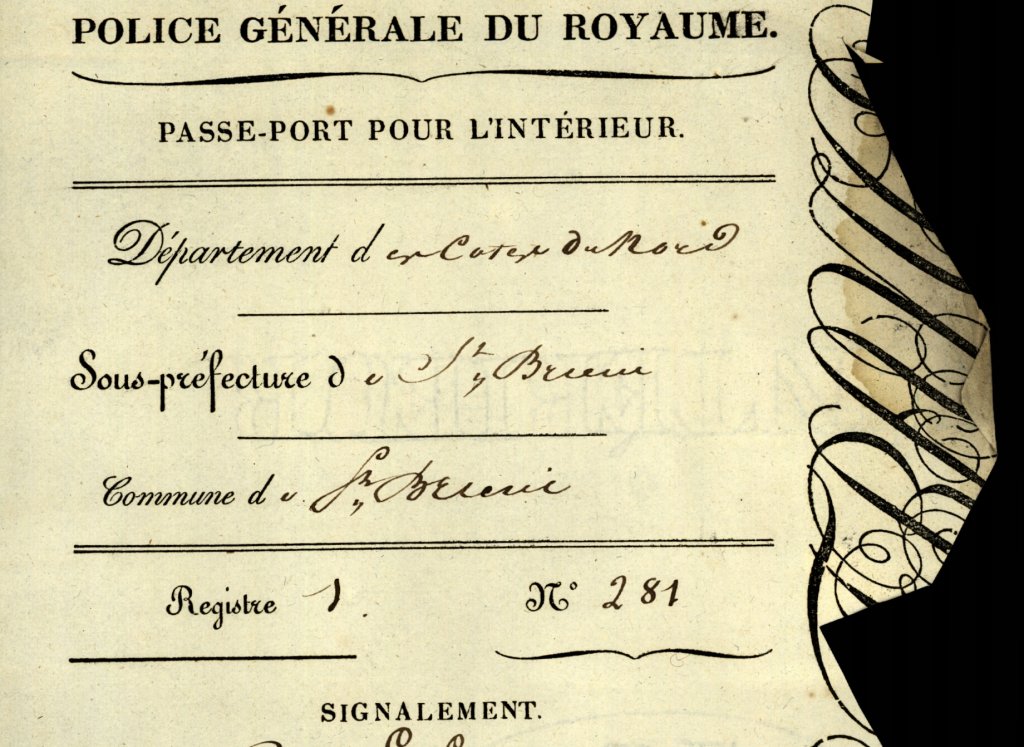 POLICE GÉNÉRALE DU ROYAUME.
PASSE-PORT POUR L'INTÉRIEUR.
Département des Cotes du Nord
Sous-préfecture de St Brieuc
Commune de St Brieuc
Registre 1.
N° 281
SIGNALEMENT.